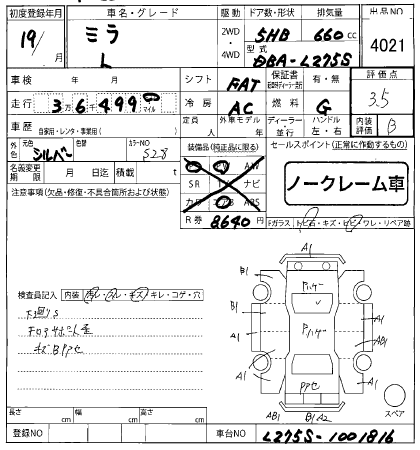 初度登録年月 車名・グレード 駆動 ドア数・形状 排気量 出品NO
19/ 月 ミラ L 2WD・4WD 5HB 660cc 4021
型式 DBA-L275S
車検 年 月 シフト FAT 保証書 有・無 評価点
走行 3万6千499 km マイル 冷房 AC 燃料 G 3.5
車歴 自家用・レンタ・事業用( ) 定員 人 外車モデル 年 ディーラー・並行 ハンドル 左・右 内装評価 B
外色 元色 シルバー 色替 カラーNO S28 装備品(純正品に限る) セールスポイント(正常に作動するもの)
名義変更期限 月 日迄 積載 t SR ナビ ABS ノークレーム車
注意事項(欠品・修復・不具合箇所および状態) R券 8640円 Fガラス トビ石・キズ・ヒビ・ワレ・リペア跡
A1
B1 A1
検査員記入 内装 汚レ・スレ・キズ・キレ・コゲ・穴
下回りS
B1 A1
A1 AB1
キズBアセ
A1 A1
アセ
スペア
AB1 B1 A2
長さ cm 幅 cm 高さ cm
登録NO 車台NO L275S-1001816